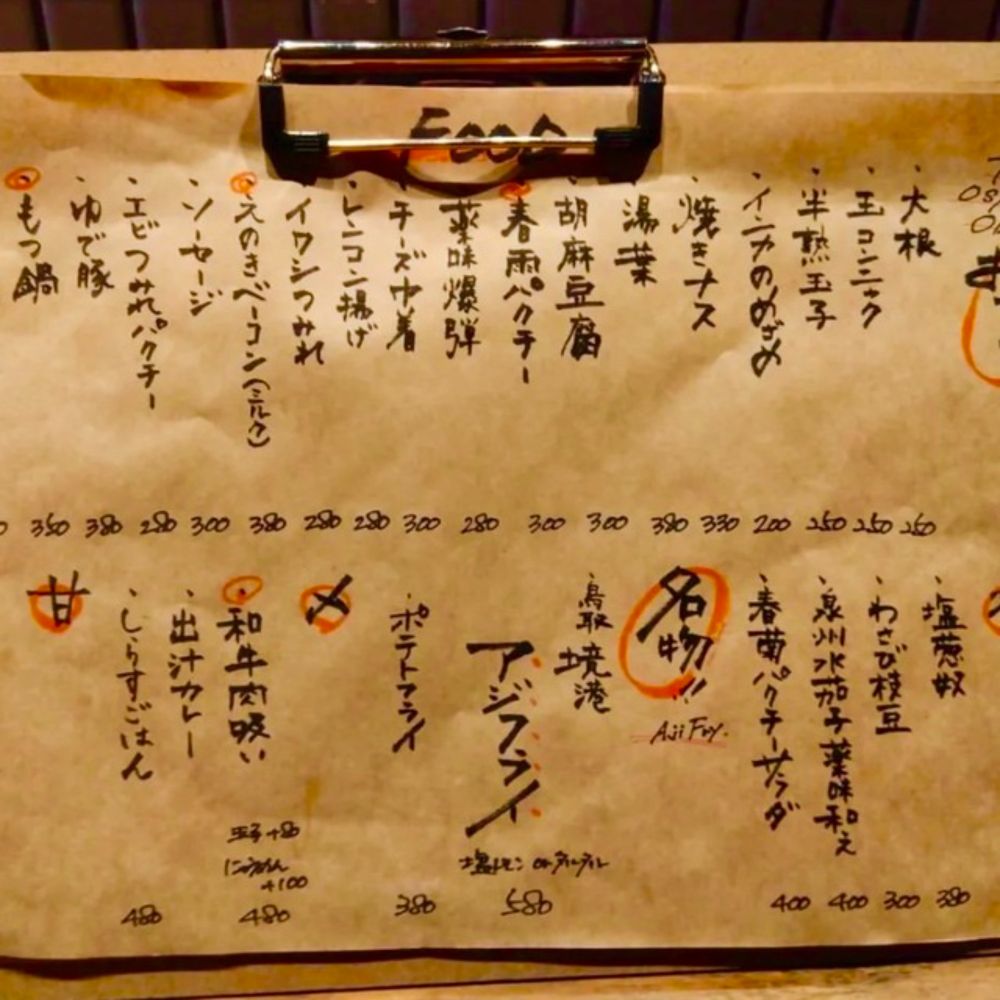 Food
・大根 250
・玉コンニャク 250
・半熟玉子 250
・インカのめざめ 200
・焼きナス 330
・湯葉 380
・胡麻豆腐 300
・春雨パクチー 300
・薬味爆弾 280
・チーズ巾着 300
・レンコン揚げ 280
・イワシつみれ 280
・えのきベーコン(ミルク) 380
・ソーセージ 300
・エビつみれパクチー 280
・ゆで豚 380
・もつ鍋 350
・塩葱奴 380
・わさび枝豆 300
・泉州水茄子薬味和え 400
・春菊パクチーサラダ 400
名物!!
Aji Fry.
・鳥取境港
アジフライ
塩レモン or タルタル
580
・ポテトフライ 380
〆
・和牛肉吸い
玉子+80
にゅうめん
+100
480
・出汁カレー
・しらすごはん 480
甘